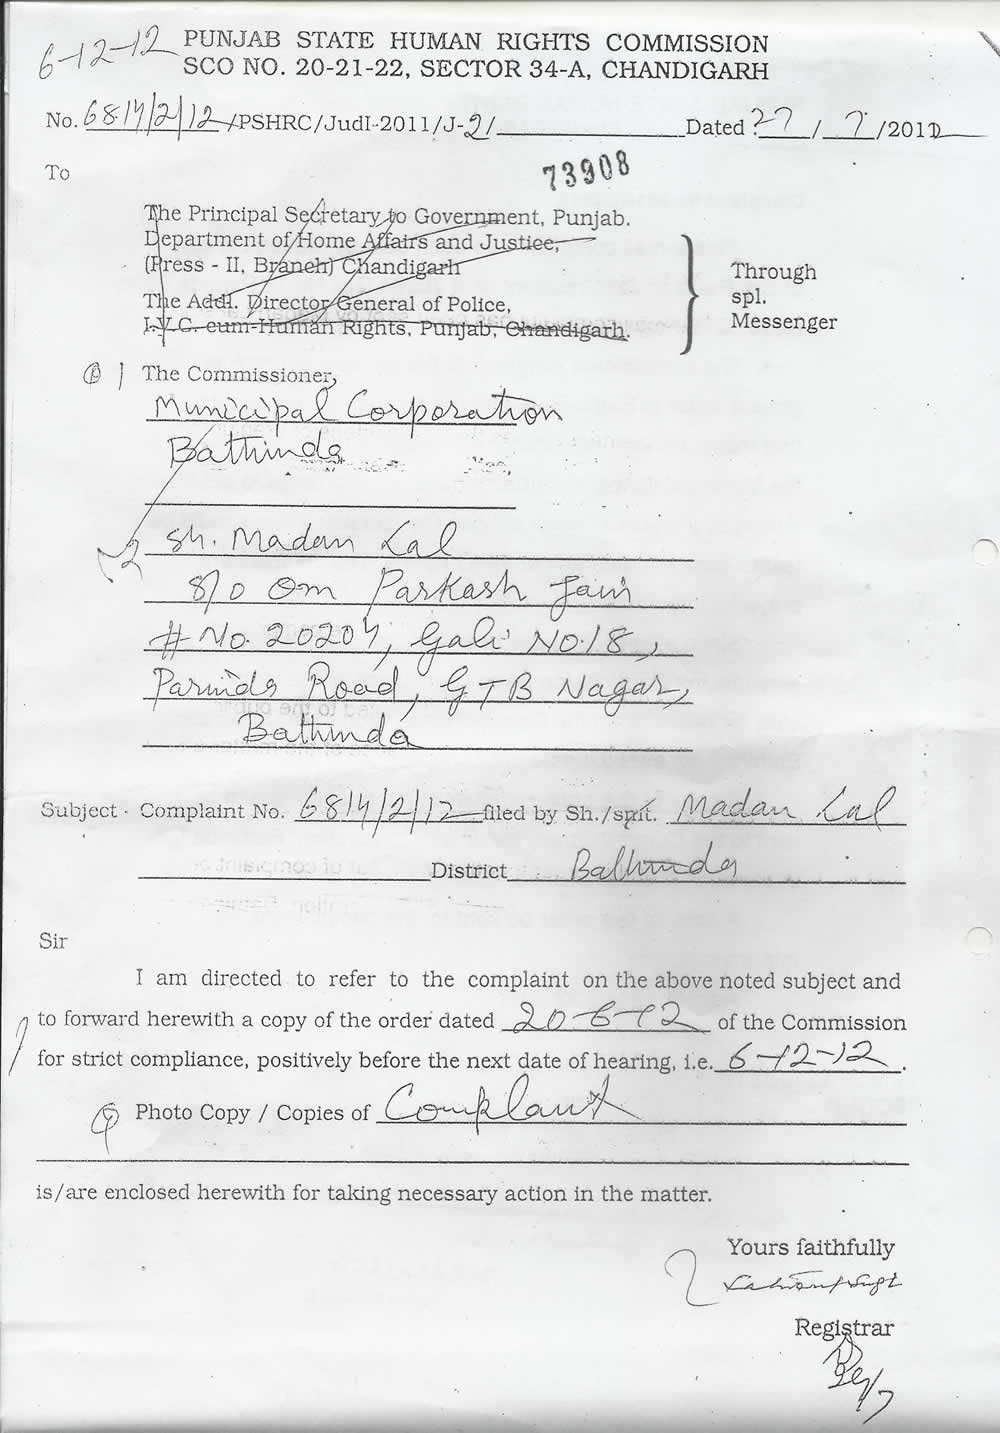 6-12-12
PUNJAB STATE HUMAN RIGHTS COMMISSION
SCO NO. 20-21-22, SECTOR 34-A, CHANDIGARH
No. 6814/2/12/PSHRC/Judl-2011/J-2/ Dated 27/7/2012
73908
To
The Principal Secretary to Government, Punjab.
Department of Home Affairs and Justice,
(Press - II, Branch) Chandigarh
The Addl. Director General of Police,
I.V.C.-cum-Human Rights, Punjab, Chandigarh.
Through
spl.
Messenger
1 The Commissioner,
Municipal Corporation
Bathinda
2 Sh. Madan Lal
S/o Om Parkash Jain
# No. 20204, Gali No. 18,
Road, GTB Nagar,
Bathinda
Subject - Complaint No. 6814/2/12 filed by Sh./smt. Madan Lal
District Bathinda
Sir
I am directed to refer to the complaint on the above noted subject and
to forward herewith a copy of the order dated 20-6-12 of the Commission
for strict compliance, positively before the next date of hearing, i.e. 6-12-12.
Photo Copy / Copies of Complaint
is/are enclosed herewith for taking necessary action in the matter.
Yours faithfully
Registrar